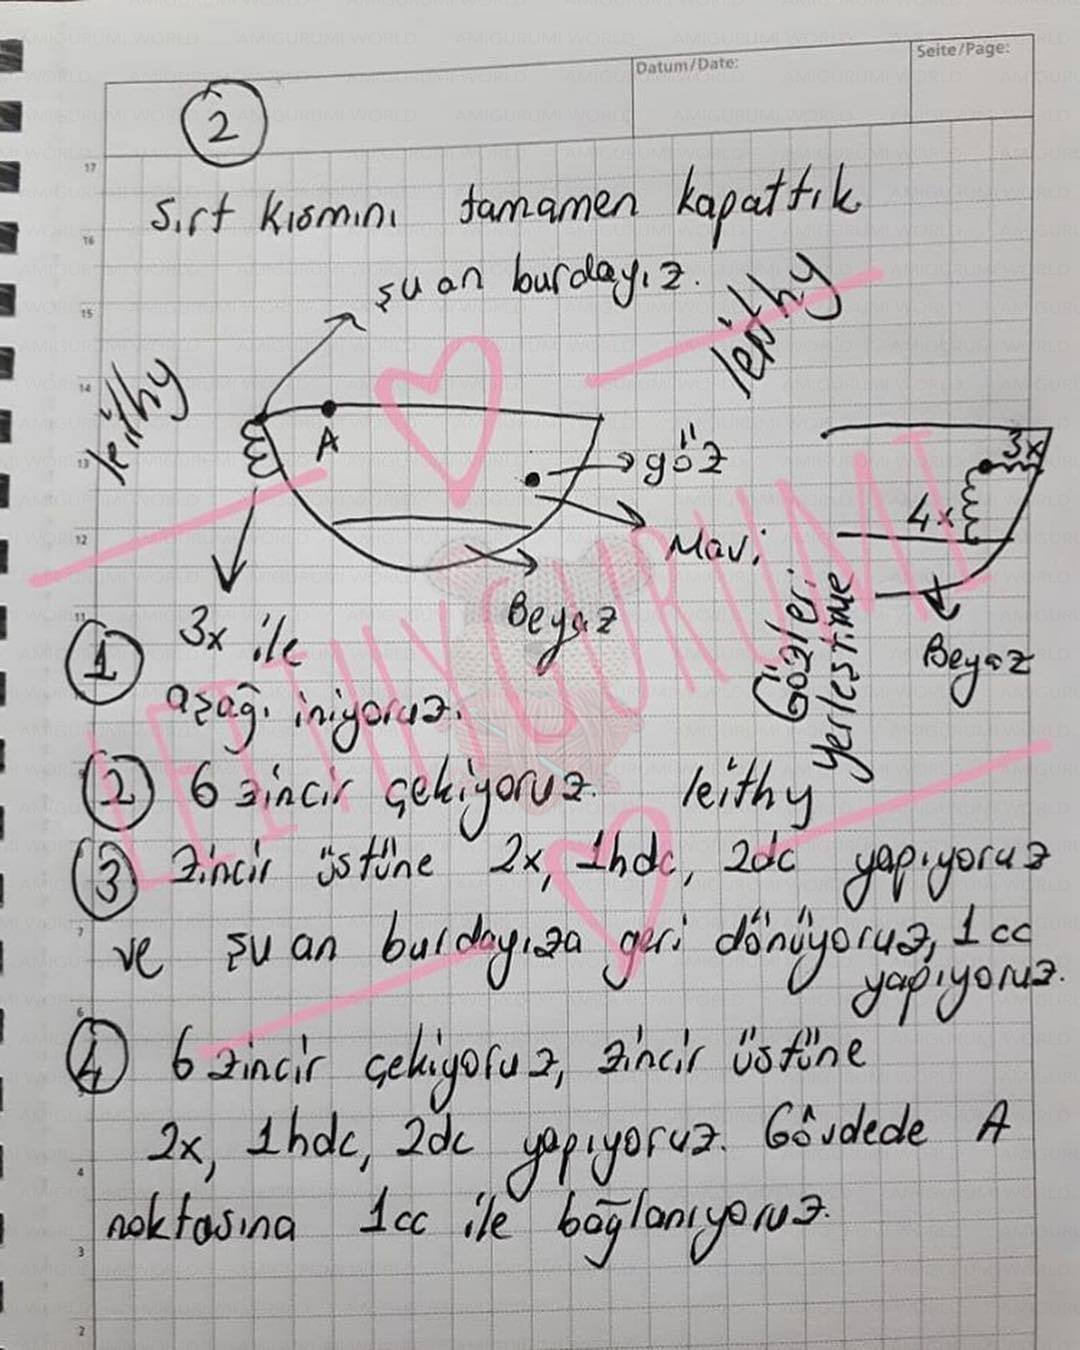 Datum/Date:
Seite/Page:
2
Sırt kısmını tamamen kapattık
şu an burdayız.
leithy
leithy
A
göz
Mavi
Beyaz
3x
4x
Beyaz
Gözleri
yerleştirme
1 3x ile
aşağı iniyoruz.
2 6 zincir çekiyoruz. leithy
3 zincir üstüne 2x, 1hdc, 2dc yapıyoruz
ve şu an burdayıza geri dönüyoruz, 1cc
yapıyoruz.
4 6 zincir çekiyoruz, zincir üstüne
2x, 1hdc, 2dc yapıyoruz. Gövdede A
noktasına 1cc ile bağlanıyoruz.
LEITHYGURUMI
17
16
15
14
13
12
11
7
6
4
3
2
AMIGURUMI WORLD